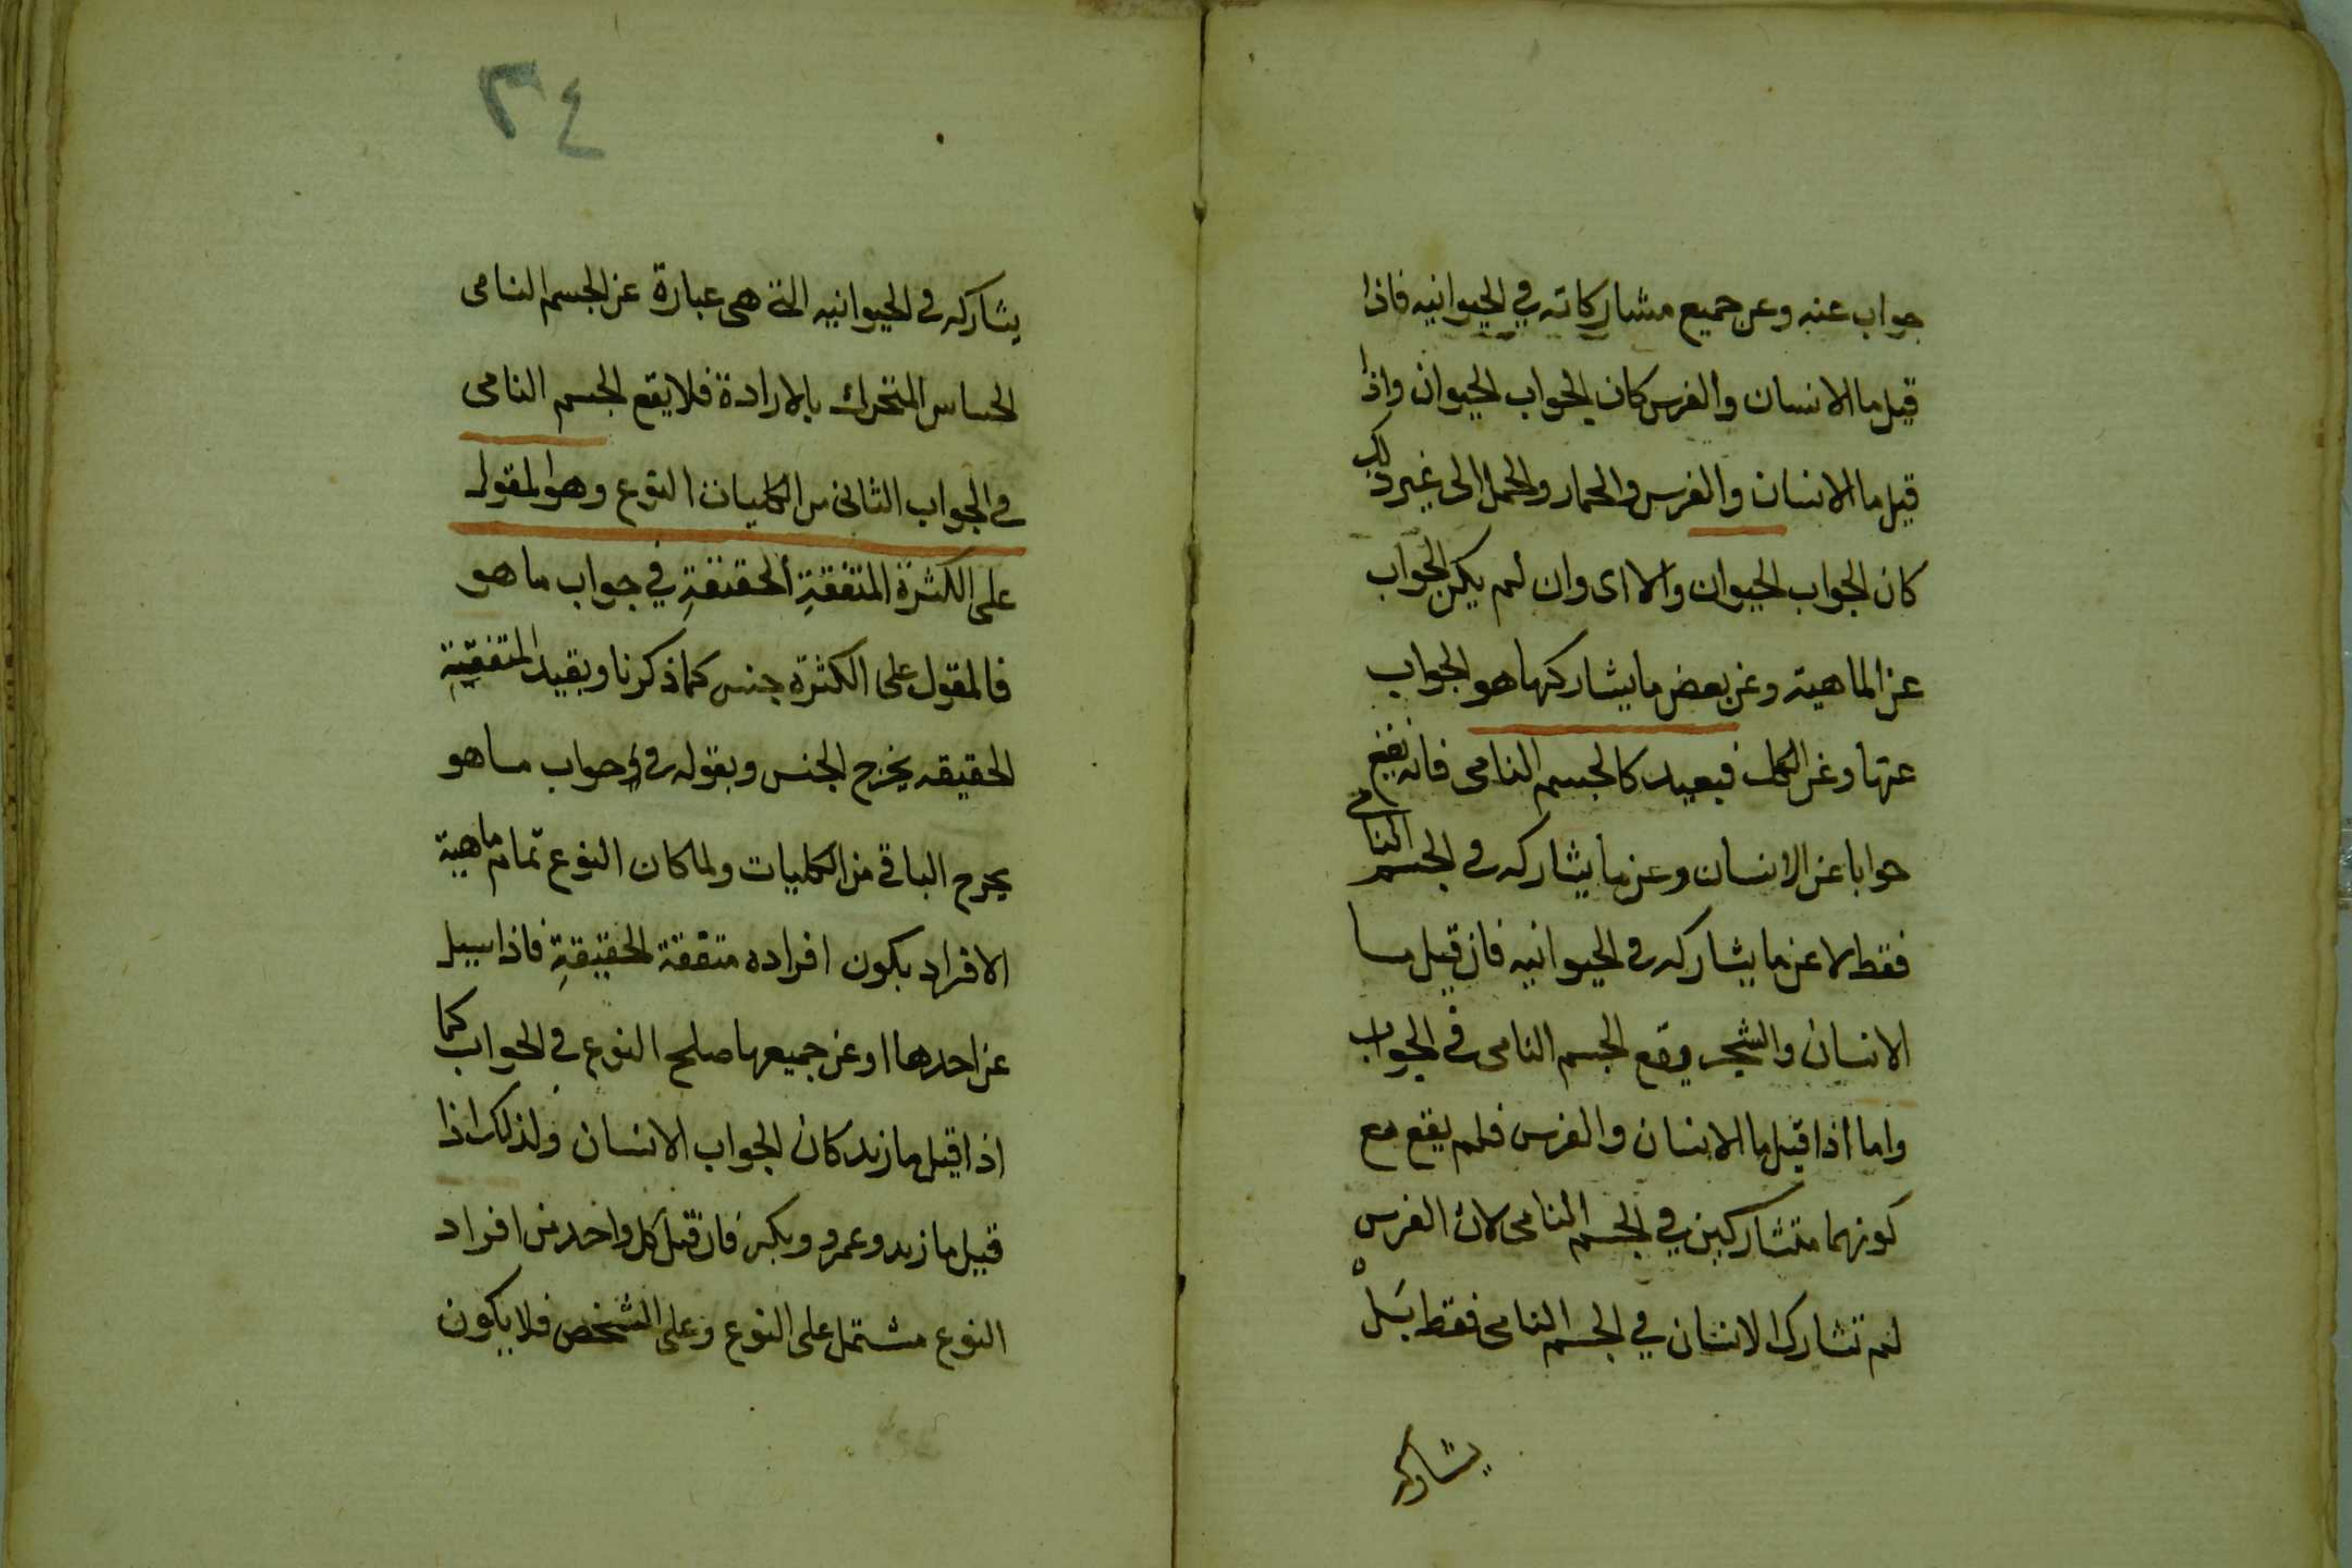 جواب عنه وعن جميع مشاركاته في الحيوانيه فاذا
قيل ما الانسان والفرس كان الجواب الحيوان واذا
قيل ما الانسان والفرس والحمار والجمل الى غير ذلك
كان الجواب الحيوان والا اى وان لم يكن الجواب
عن الماهية وعن بعض ما يشاركها هو الجواب
عنها وعن الكل فبعيد كالجسم النامى فانه يقع
جوابا عن الانسان وعن ما يشاركه في الجسم النامى
فقط لا عن ما يشاركه في الحيوانيه فان قيل ما
الانسان والشجر وقع الجسم النامى في الجواب
واما اذا قيل ما الانسان والفرس فلم يقع مع
كونهما متشاركين في الجسم النامى لان الفرس
لم تشارك الانسان في الجسم النامى فقط بل
يشاركه
٣٤
يشاركه في الحيوانيه التى هى عبارة عن الجسم النامى
الحساس المتحرك بالارادة فلا يقع الجسم النامى
في الجواب الثانى من الكليات النوع وهو المقول
على الكثرة المتفقة الحقيقة في جواب ما هو
فالمقول على الكثرة جنس كما ذكرنا وبقيد المتفقة
الحقيقه يخرج الجنس وبقوله في جواب ما هو
يخرج الباقي من الكليات ولما كان النوع تمام ماهية
الافراد يكون افراده متفقة الحقيقة فاذا سيل
عن احدها او عن جميعها صلح النوع في الجواب كما
اذا قيل ما زيد كان الجواب الانسان ولذلك اذا
قيل ما زيد وعمرو وبكر فان قيل كل واحد من افراد
النوع مشتمل على النوع وعلى الشخص فلا يكون